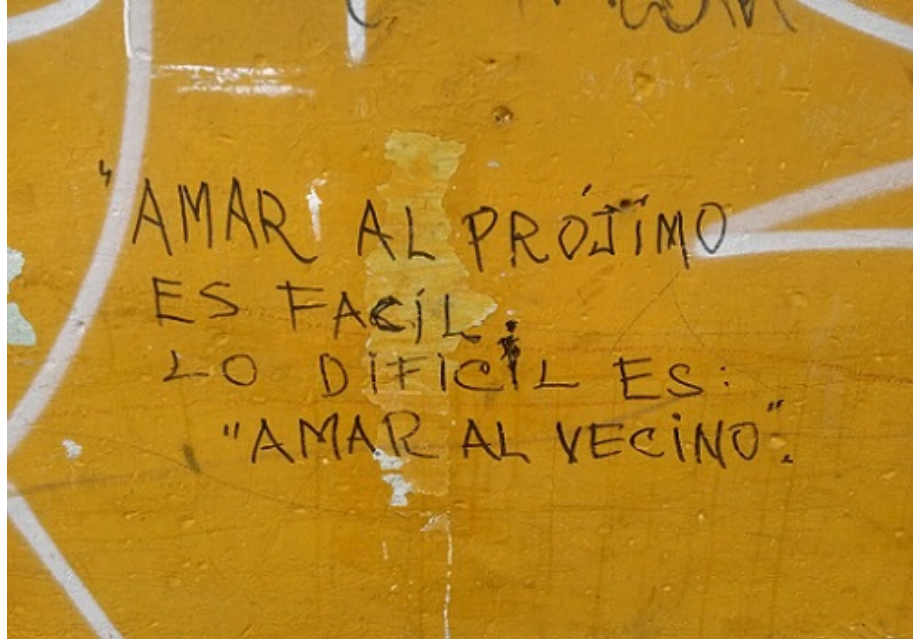 "AMAR AL PRÓJIMO
ES FACÍL.
LO DIFICIL ES:
"AMAR AL VECINO".